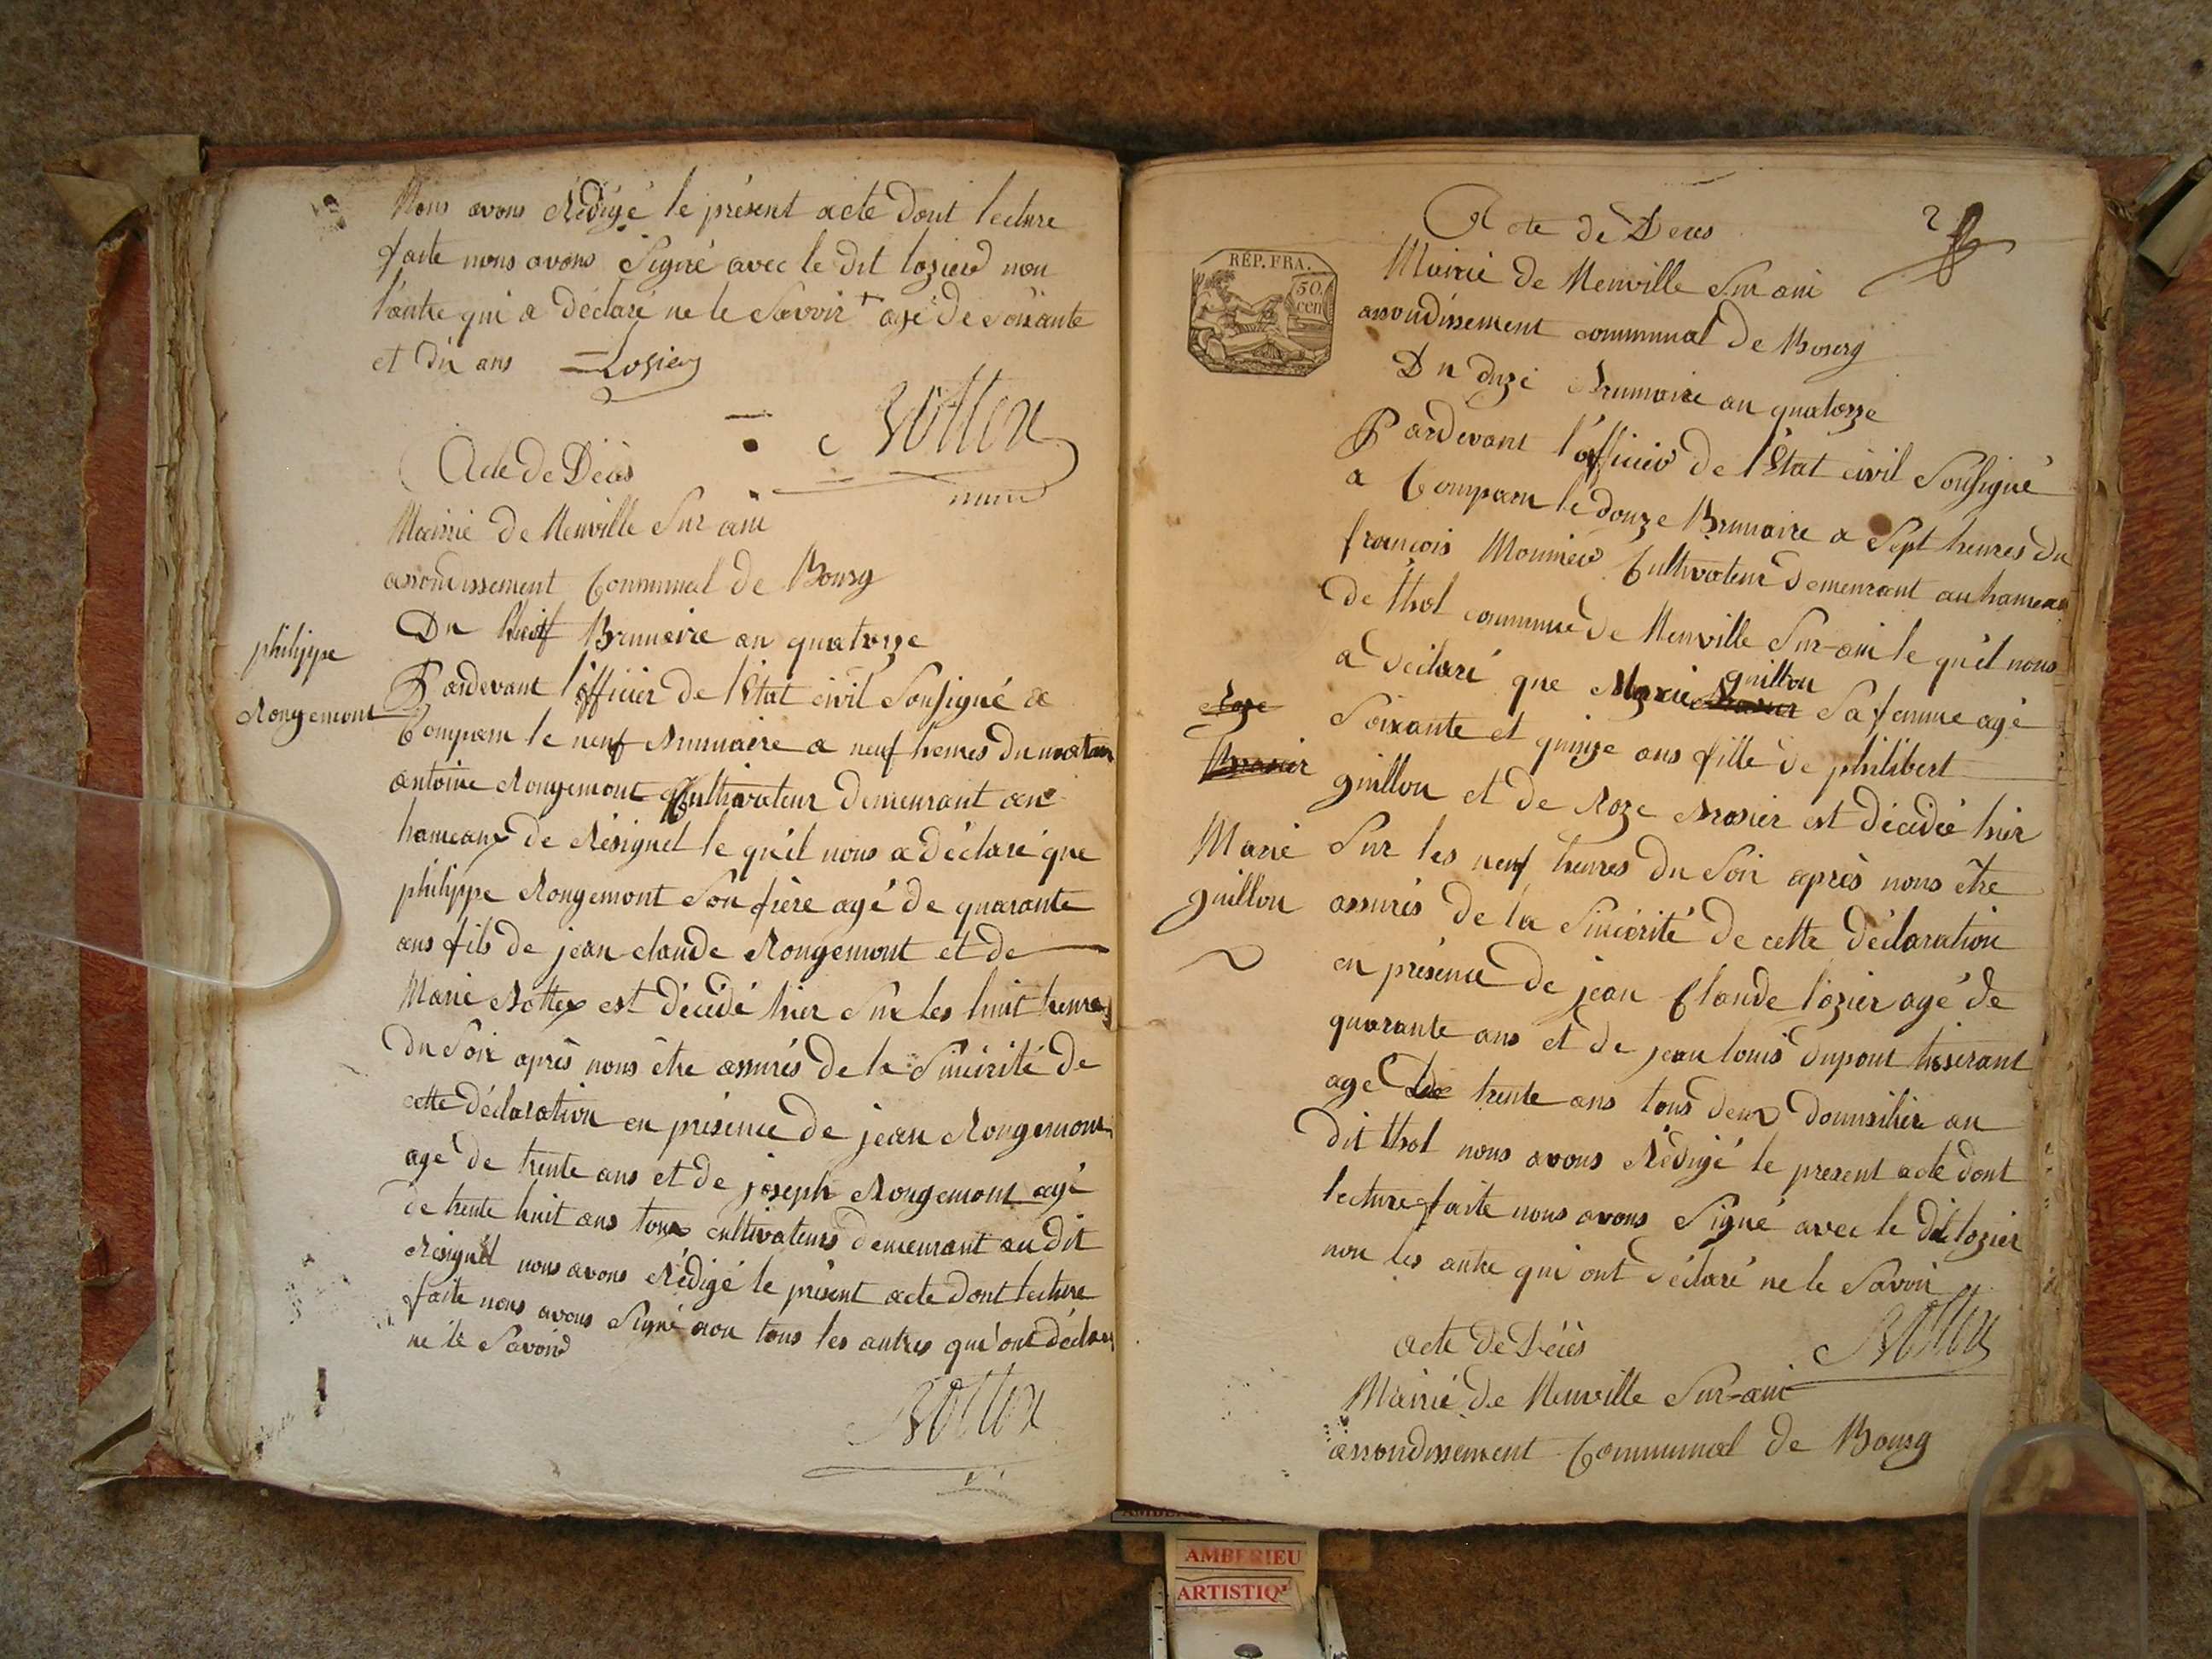 Nous avons Rédigé le présent acte dont lecture
faite nous avons Signé avec le dit lozier non
l'autre qui a déclaré ne le Savoir + agé de soixante
et dix ans Losier
Acte de Décès
Mairie de Neuville Sur ain
arrondissement Communal de Bourg
Du neuf Brumaire an quatorze
philippe
Rougemont
Pardevant l'officier de l'Etat civil Sousigné a
Comparu le neuf Brumaire a neuf heures du matin
antoine Rougemont Cultivateur demeurant au
hameaux de Résignel le quel nous a déclaré que
philippe Rougemont Son frère agé de quarante
ans fils de jean claude Rougemont et de
Marie est décédé hier Sur les huit heures
du Soir après nous être assurés de la Sincérité de
cette déclaration en présence de jean Rougemont
agé de trente ans et de joseph Rougemont agé
de trente huit ans tous cultivateurs demeurant au dit
Résignel nous avons Rédigé le présent acte dont lecture
faite nous avons Signé non tous les autres qui ont déclaré
ne le Savoir
2
Acte de Deces
RÉP. FRA.
50.
cen
Mairie de Neuville Sur ain
arrondissement communal de Bourg
Du Brumaire an quatorze
Pardevant l'officier de l'Etat civil Sousigné
a Comparu le douze Brumaire a Sept heures du
françois Mounier Cultivateur demeurant au hameau
de thol commune de Neuville Sur-ain le quel nous
guillon
a déclaré que Marie Sa femme agé
Roze
Brasier
Soixante et quinze ans fille de philibert
guillon et de Roze Brasier est décédée hier
Marie
guillon
Sur les neuf heures du Soir après nous être
assurés de la Sincérité de cette déclaration
en présence de jean Claude lozier agé de
quarante ans et de jean louis dupont tisserant
agé de trente ans tous deux domicilier au
dit thol nous avons Rédigé le present acte dont
lecture faite nous avons Signé avec le dit lozier
non les autre qui ont déclaré ne le Savoir
acte de Décès
Mairie de Neuville Sur-ain
arrondissement Communal de Bourg
AMBERIEU
ARTISTIQ